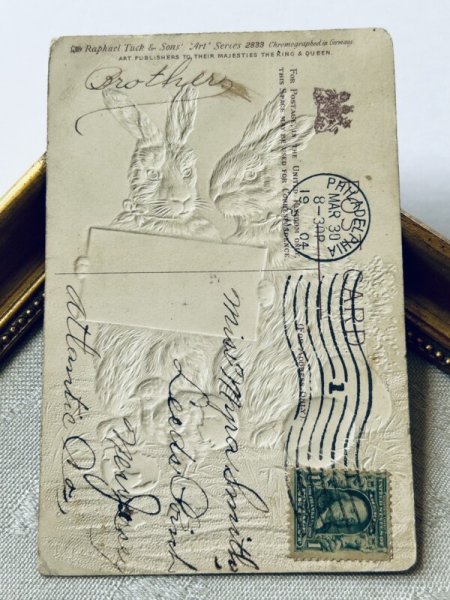 Raphael Tuck & Sons' "Art" Series 2833 Chromographed in Germany.
ART PUBLISHERS TO THEIR MAJESTIES THE KING & QUEEN.
Brothers
FOR POSTAGE IN THE UNITED KINGDOM ONLY,
THIS SPACE MAY BE USED FOR CORRESPONDENCE.
PHILADELPHIA
MAR 30
8-30P
1904
CARD
1
Miss Myra Smith
Leeds Point
New Jersey
Atlantic Co